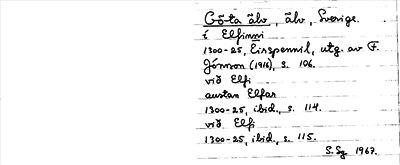 Göta älv, älv, Sverige.
í Elfinni
1300-25, Eirspennil, utg. av F.
Jónsson (1916), s. 106.
við Elfi
austan Elfar
1300-25, ibid., s. 114.
við Elfi
1300-25, ibid., s. 115.
S.Sg 1967.